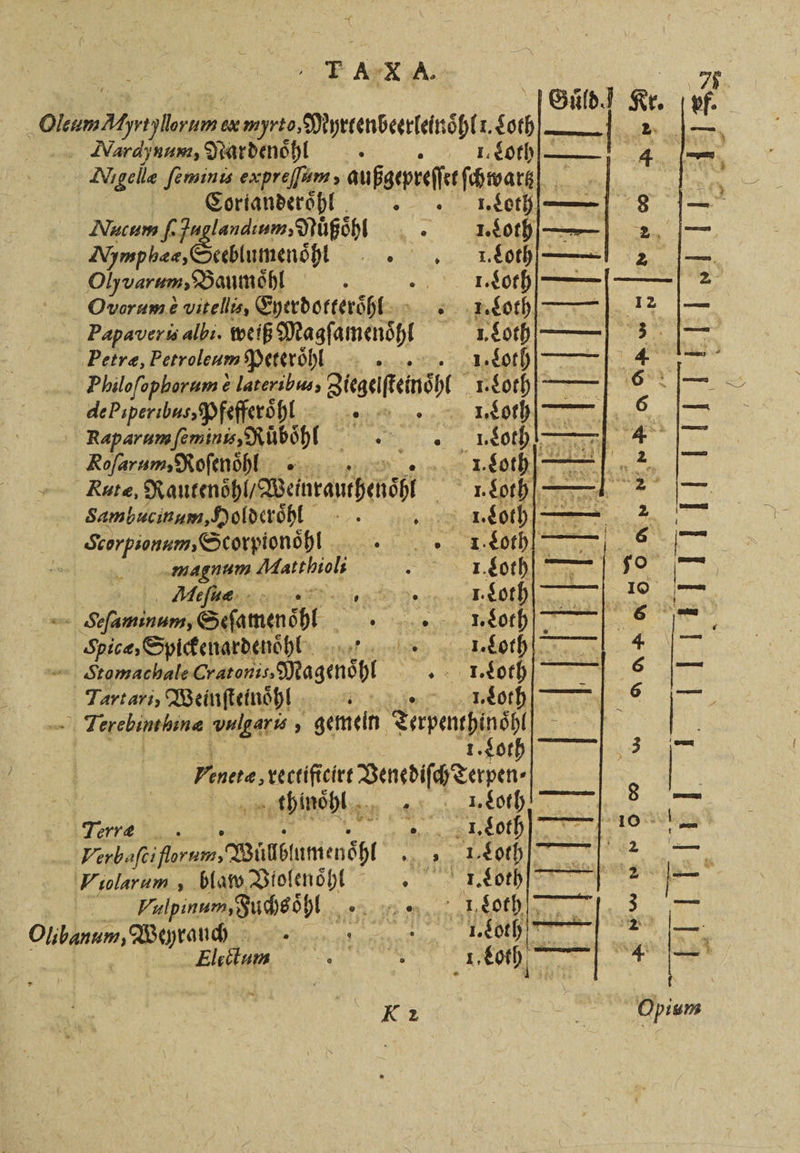 TAXA.
75
Gůld. Kr. pf.
Oleum Myrtyllorum ex myrto, Myrtenbeerleinöhl 1. Loth — 2 —
Nardynum, Nardenöhl . . 1. Loth — 4 —
Nigellæ seminis expressum, außgepresset schwartz
Coriander öhl . . 1. Loth — 8 —
Nucum f. Juglandium, Nußöhl . 1. Loth — 2 —
Nymphææ, Seeblumenöhl . . 1. Loth — 2 —
Olyvarum, Baumöhl . . 1. Loth — — 2
Ovorum è vitellis, Eyerdotteröhl . 1. Loth — 12 —
Papaveris albi. weiß Magsamenöhl 1. Loth — 3 —
Petræ, Petroleum Peteröhl . . . 1. Loth — 4 —
Philosophorum è lateribus, Ziegelsteinöhl 1. Loth — 6 —
de Piperibus, Pfefferöhl . . 1. Loth — 6 —
Raparum seminis, Rüböhl . . 1. Loth — 4 —
Rosarum, Rosenöhl . . . 1. Loth — 2 —
Rutæ, Rautenöhl/Weinrauthenöhl 1. Loth — 2 —
Sambucinum, Holderöhl . . 1. Loth — 2
Scorpionum, Scorpionöhl . . 1. Loth — 6 —
magnum Matthioli . 1. Loth — 50 —
Mesuæ . . . 1. Loth — 10 —
Sesaminum, Sesamenöhl . . 1. Loth — 6 —
Spicæ, Spickenardenöhl . . 1. Loth — 4 —
Stomachale Cratonis, Magenöhl . 1. Loth — 6 —
Tartari, Weinsteinöhl . . 1. Loth — 6 —
Terebinthinæ vulgaris, gemein Terpenthinöhl
1. Loth — 3 —
Venetæ, rectificirt Benedisch Terpen-
thinöhl . 1. Loth — 8 —
Terræ . . . . . 1. Loth — 10 —
Verbasci florum, Wüllblumenöhl . , 1. Loth — 2 —
Violarum, blaw Violenöhl . 1. Loth — 2 —
Vulpinum, Fuchßöhl . . 1. Loth — 3 —
Olibanum, Weyrauch . . . 1. Loth — 2 —
Electum . . 1. Loth — 4 —
K 2
Opium